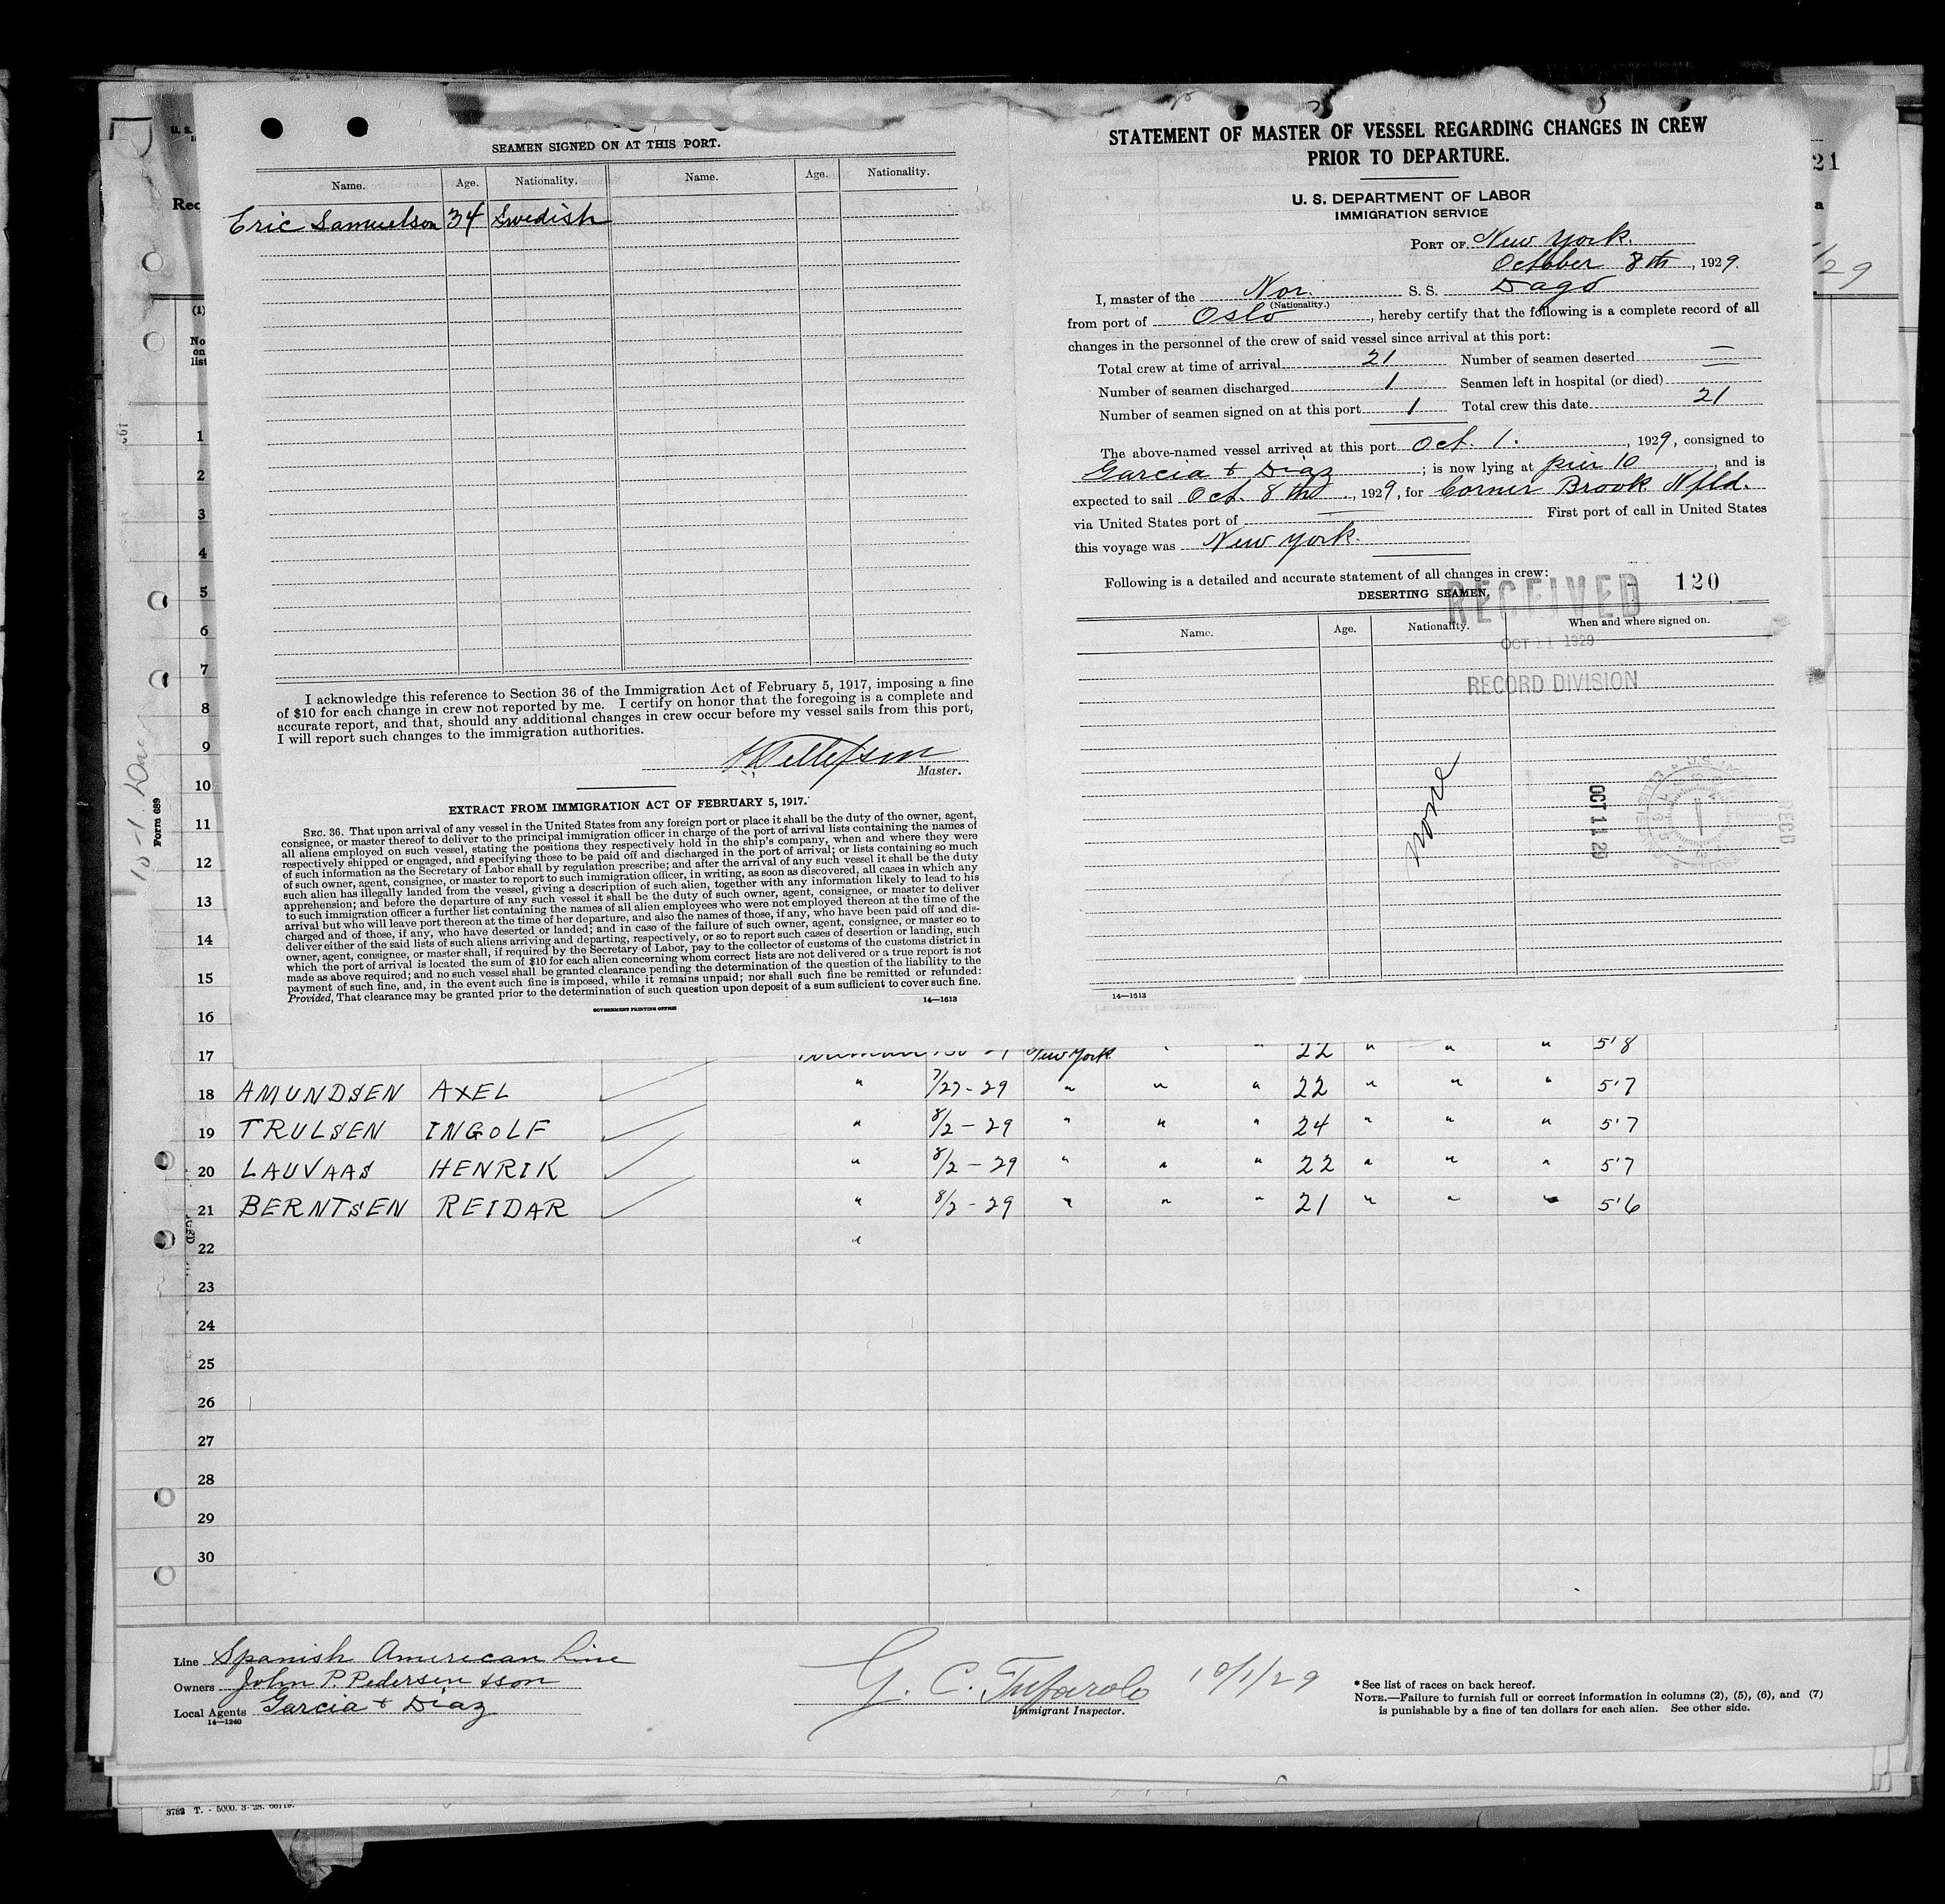 SEAMEN SIGNED ON AT THIS PORT.
Name. Age. Nationality. Name. Age. Nationality.
Eric Samuelson 34 Swedish
I acknowledge this reference to Section 36 of the Immigration Act of February 5, 1917, imposing a fine
of $10 for each change in crew not reported by me. I certify on honor that the foregoing is a complete and
accurate report, and that, should any additional changes in crew occur before my vessel sails from this port,
I will report such changes to the immigration authorities.
Tellefsen
Master.
EXTRACT FROM IMMIGRATION ACT OF FEBRUARY 5, 1917.
SEC. 36. That upon arrival of any vessel in the United States from any foreign port or place it shall be the duty of the owner, agent,
consignee, or master thereof to deliver to the principal immigration officer in charge of the port of arrival lists containing the names of
all aliens employed on such vessel, stating the positions they respectively hold in the ship's company, when and where they were
respectively shipped or engaged, and specifying those to be paid off and discharged in the port of arrival; or lists containing so much
of such information as the Secretary of Labor shall by regulation prescribe; and after the arrival of any such vessel it shall be the duty
of such owner, agent, consignee, or master to report to such immigration officer, in writing, as soon as discovered, all cases in which any
such alien has illegally landed from the vessel, giving a description of such alien, together with any information likely to lead to his
apprehension; and before the departure of any such vessel it shall be the duty of such owner, agent, consignee, or master to deliver
to such immigration officer a further list containing the names of all alien employees who were not employed thereon at the time of the
arrival but who will leave port thereon at the time of her departure, and also the names of those, if any, who have been paid off and dis-
charged and of those, if any, who have deserted or landed; and in case of the failure of such owner, agent, consignee, or master so to
deliver either of the said lists of such aliens arriving and departing, respectively, or so to report such cases of desertion or landing, such
owner, agent, consignee, or master shall, if required by the Secretary of Labor, pay to the collector of customs of the customs district in
which the port of arrival is located the sum of $10 for each alien concerning whom correct lists are not delivered or a true report is not
made as above required; and no such vessel shall be granted clearance pending the determination of the question of the liability to the
payment of such fine, and, in the event such fine is imposed, while it remains unpaid; nor shall such fine be remitted or refunded:
Provided, That clearance may be granted prior to the determination of such question upon deposit of a sum sufficient to cover such fine.
14—1613
GOVERNMENT PRINTING OFFICE
STATEMENT OF MASTER OF VESSEL REGARDING CHANGES IN CREW
PRIOR TO DEPARTURE.
U. S. DEPARTMENT OF LABOR
IMMIGRATION SERVICE
PORT OF New York.
October 8th, 1929.
I, master of the Nor. S. S. Dago
(Nationality.)
from port of Oslo, hereby certify that the following is a complete record of all
changes in the personnel of the crew of said vessel since arrival at this port:
Total crew at time of arrival 21 Number of seamen deserted —
Number of seamen discharged 1 Seamen left in hospital (or died) —
Number of seamen signed on at this port 1 Total crew this date 21
The above-named vessel arrived at this port Oct. 1., 1929, consigned to
Garcia & Diaz; is now lying at pier 10 and is
expected to sail Oct. 8th, 1929, for Corner Brook Nfld.
via United States port of — First port of call in United States
this voyage was New York.
Following is a detailed and accurate statement of all changes in crew:
120
DESERTING SEAMEN.
RECEIVED
OCT 11 1929
RECORD DIVISION
Name. Age. Nationality. When and where signed on.
none
OCT 11 29
RECD
14—1613
21
/29
U. S.
Rec
(1)
No
on
list
Form 689
1
2
3
4
5
6
7
8
9
10
11
12
13
14
15
16
17 New York " " 22 " " " 5'8
18 AMUNDSEN AXEL " 7/27-29 " " " 22 " " " 5'7
19 TRULSEN INGOLF " 8/2-29 " " " 24 " " " 5'7
20 LAUVAAS HENRIK " 8/2-29 " " " 22 " " " 5'7
21 BERNTSEN REIDAR " 8/2-29 " " " 21 " " " 5'6
22 "
23
24
25
26
27
28
29
30
Line Spanish American Line
Owners John P. Pedersen & son
Local Agents Garcia & Diaz
14—1240
G. C. Tufarolo 10/1/29
Immigrant Inspector.
* See list of races on back hereof.
NOTE.—Failure to furnish full or correct information in columns (2), (5), (6), and (7)
is punishable by a fine of ten dollars for each alien. See other side.
3782 T. - 5000. 3-28.